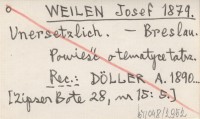 o WEILEN Josef 1879.
Unersetzlich. – Breslau.
Powieść o tematyce tatrz.
Rec.: DÖLLER A. 1890...
[Zipser Bote 28, nr 15: 5.]